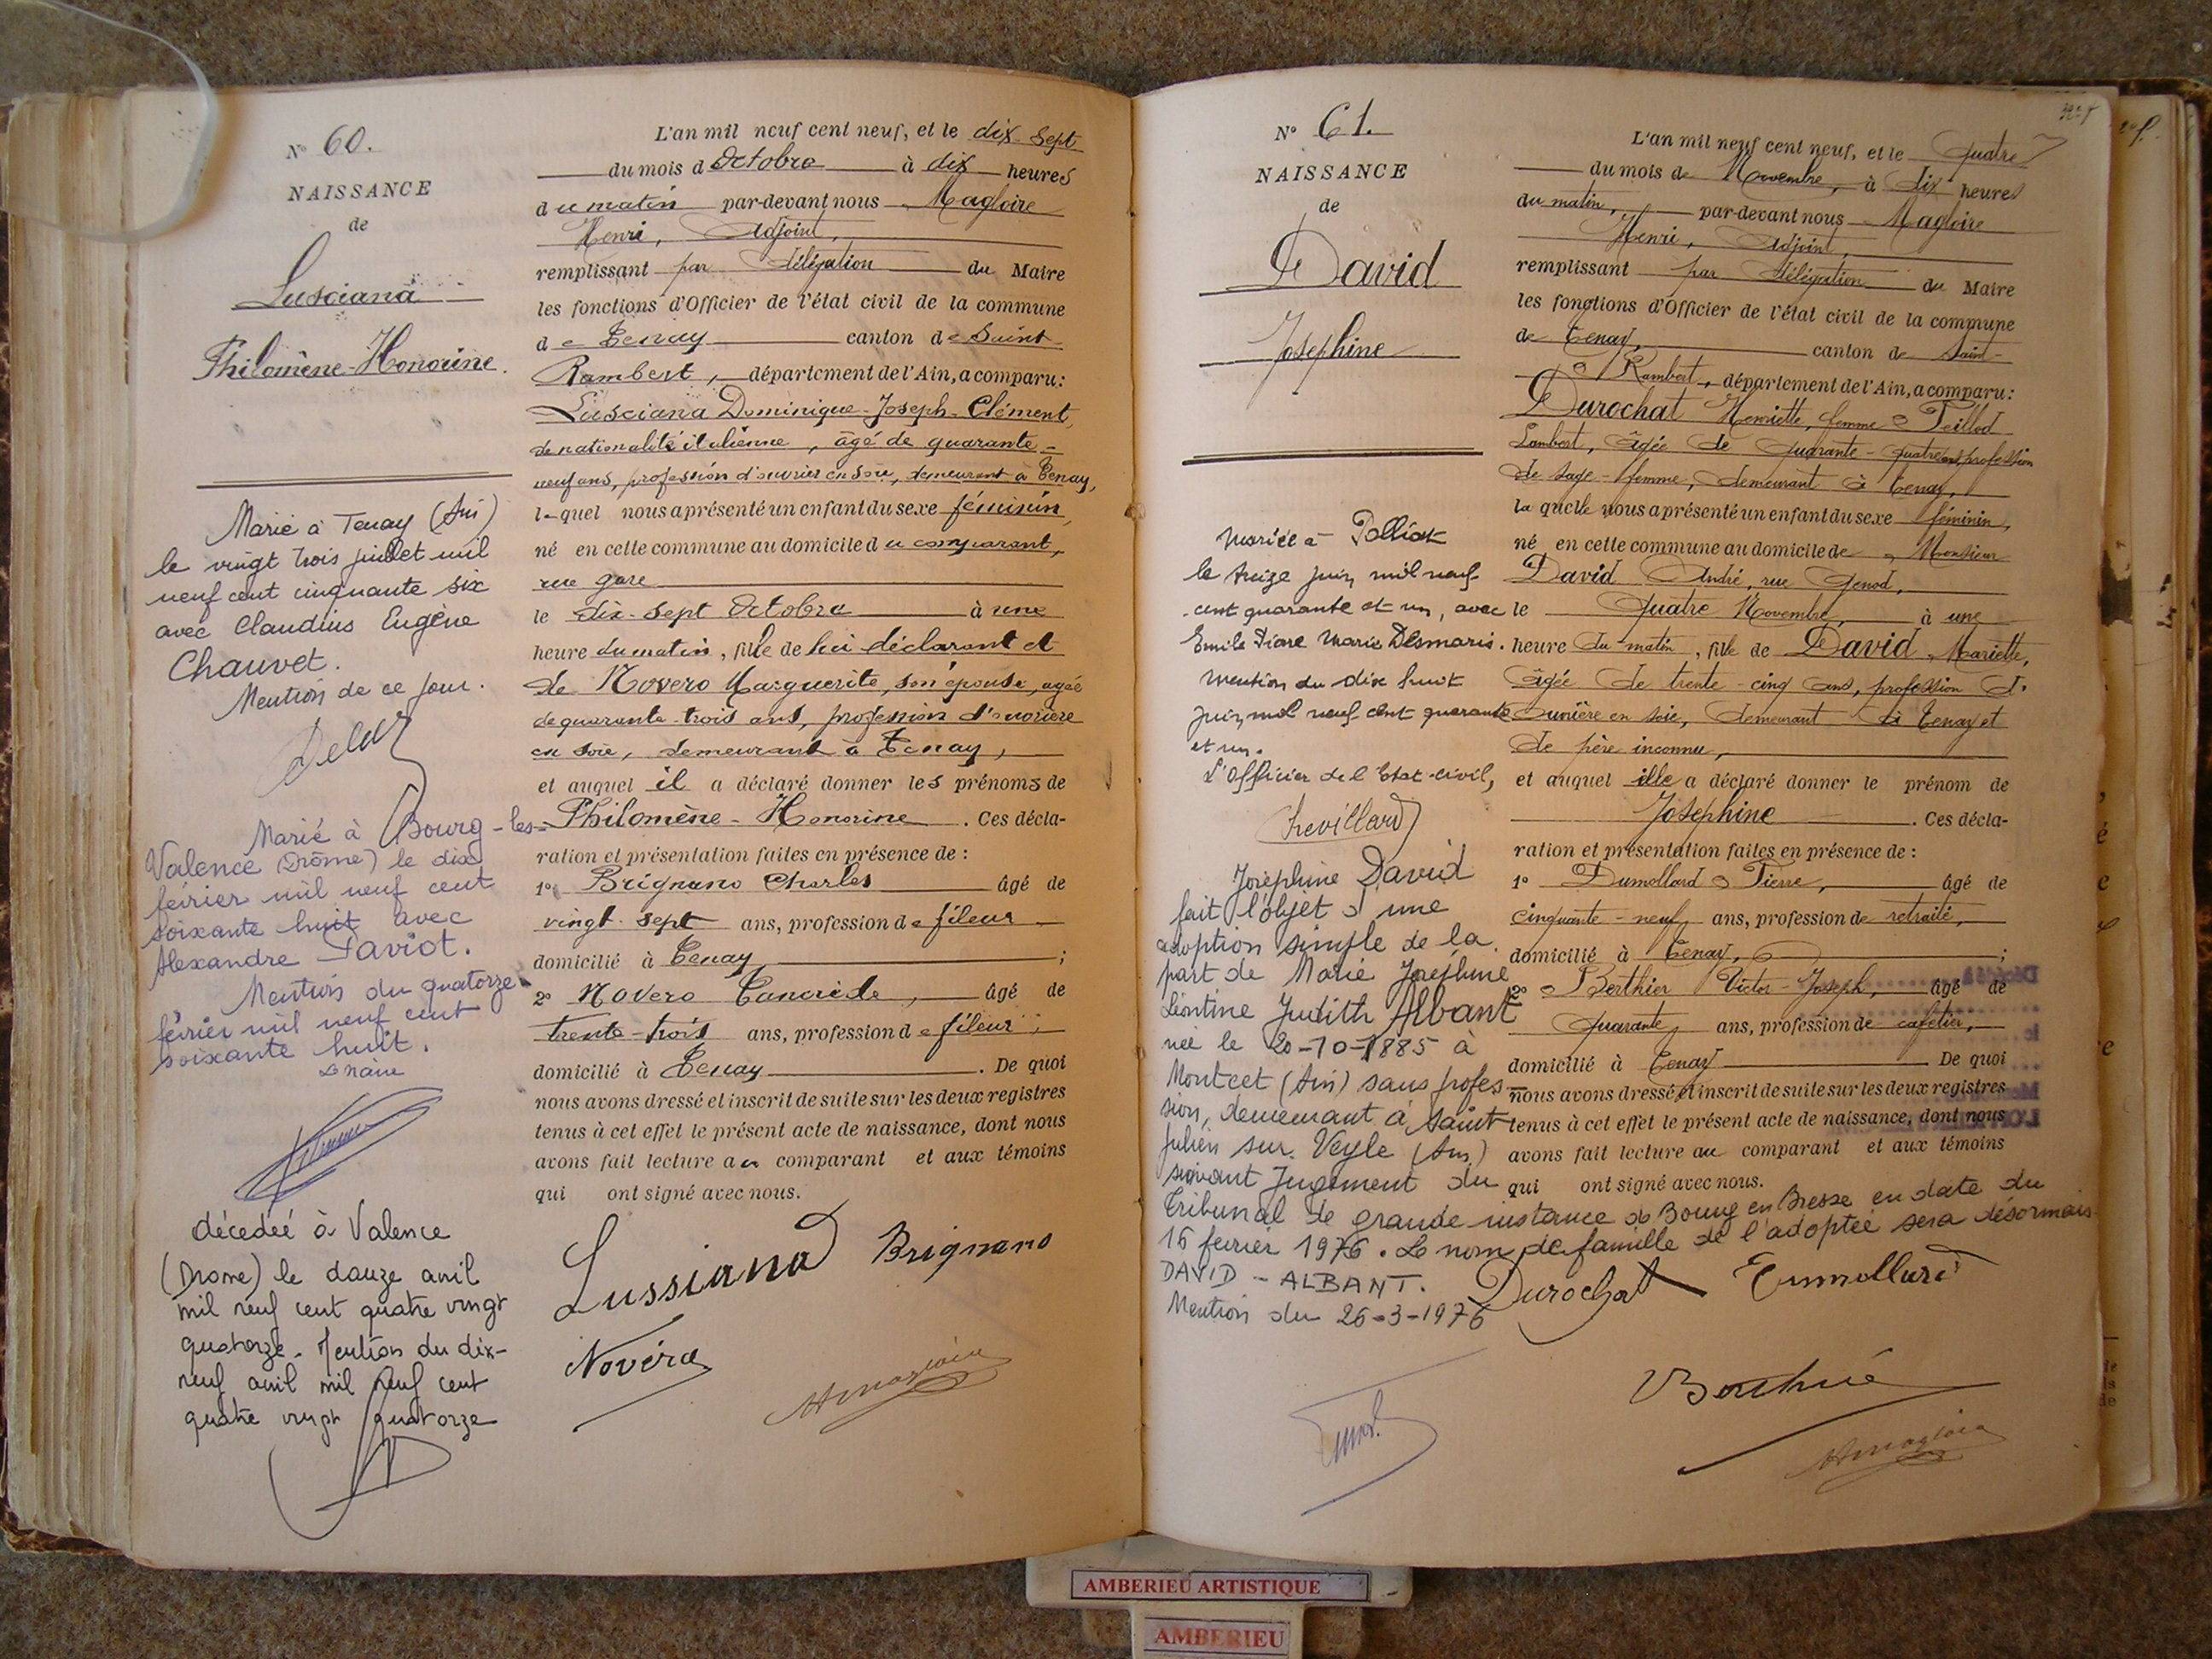 N° 60.
NAISSANCE
de
Lusciana
Philomène-Honorine.
Marié à Tenay (Ain)
le vingt trois juillet mil
neuf cent cinquante six
avec Claudius Eugène
Chauvet.
Mention de ce jour.
Marié à Bourg-les-
Valence (Drôme) le dix
février mil neuf cent
soixante huit avec
Alexandre Paviot.
Mention du quatorze
février mil neuf cent
soixante huit.
Le Maire
décédée à Valence
(Drome) le douze avril
mil neuf cent quatre vingt
quatorze. Mention du dix-
neuf avril mil neuf cent
quatre vingt quatorze
L'an mil neuf cent neuf, et le dix-sept
du mois d'Octobre à dix heures
du matin par-devant nous Magloire
Henri, Adjoint,
remplissant par délégation du Maire
les fonctions d'Officier de l'état civil de la commune
de Tenay canton de Saint-
Rambert, département de l'Ain, a comparu:
Lusciana Dominique-Joseph-Clément,
de nationalité italienne, âgé de quarante-
neuf ans, profession d'ouvrier en soie, demeurant à Tenay,
lequel nous a présenté un enfant du sexe féminin,
né en cette commune au domicile du comparant,
rue gare
le dix-sept Octobre à une
heure du matin, fille de lui déclarant et
de Novero Marguerite, son épouse, agée
de quarante-trois ans, profession d'ouvrière
en soie, demeurant à Tenay,
et auquel il a déclaré donner les prénoms de
Philomène-Honorine. Ces décla-
ration et présentation faites en présence de :
1° Brignano Charles âgé de
vingt-sept ans, profession de fileur
domicilié à Tenay ;
2° Novero Tancrède, âgé de
trente-trois ans, profession de fileur,
domicilié à Tenay. De quoi
nous avons dressé et inscrit de suite sur les deux registres
tenus à cet effet le présent acte de naissance, dont nous
avons fait lecture au comparant et aux témoins
qui ont signé avec nous.
Lussiana Brignano
Novéro
HMagloire
N° 61.
NAISSANCE
de
David
Joséphine
mariée à Polliat
le treize juin mil neuf
cent quarante et un, avec
Emile Pierre Marie Desmaris.
mention du dix huit
juin mil neuf cent quarante
et un.
L'Officier de l'Etat-civil,
Chevillard
Joséphine David
fait l'objet d'une
adoption simple de la
part de Marie Joséphine
Léontine Judith Albant
née le 20-10-1885 à
Montcet (Ain) sans profes-
sion, demeurant à Saint
Julien sur Veyle (Ain)
suivant Jugement du
Tribunal de grande instance de Bourg en Bresse en date du
16 février 1976. Le nom de famille de l'adoptée sera désormais
DAVID - ALBANT.
Mention du 26-3-1976
L'an mil neuf cent neuf, et le Quatre
du mois de Novembre, à dix heures
du matin, par-devant nous Magloire
Henri, Adjoint,
remplissant par délégation du Maire
les fonctions d'Officier de l'état civil de la commune
de Tenay, canton de Saint-
Rambert, département de l'Ain, a comparu:
Durochat Henriette, femme Teillod
Lambert, âgée de quarante-quatre ans, profession
de sage-femme, demeurant à Tenay,
laquelle nous a présenté un enfant du sexe féminin,
né en cette commune au domicile de Monsieur
David André, rue Genod,
le Quatre Novembre, à une
heure du matin, fille de David Mariette,
âgée de trente-cinq ans, profession d'
ouvrière en soie, demeurant à Tenay et
de père inconnu,
et auquel elle a déclaré donner le prénom de
Joséphine. Ces décla-
ration et présentation faites en présence de :
1° Dumollard Pierre, âgé de
cinquante-neuf ans, profession de retraité,
domicilié à Tenay, ;
2° Berthier Victor-Joseph, âgé de
Quarante ans, profession de cafetier,
domicilié à Tenay De quoi
nous avons dressé et inscrit de suite sur les deux registres
tenus à cet effet le présent acte de naissance, dont nous
avons fait lecture au comparant et aux témoins
qui ont signé avec nous.
Durochat Dumollard
Berthier
HMagloire
AMBERIEU ARTISTIQUE
AMBERIEU